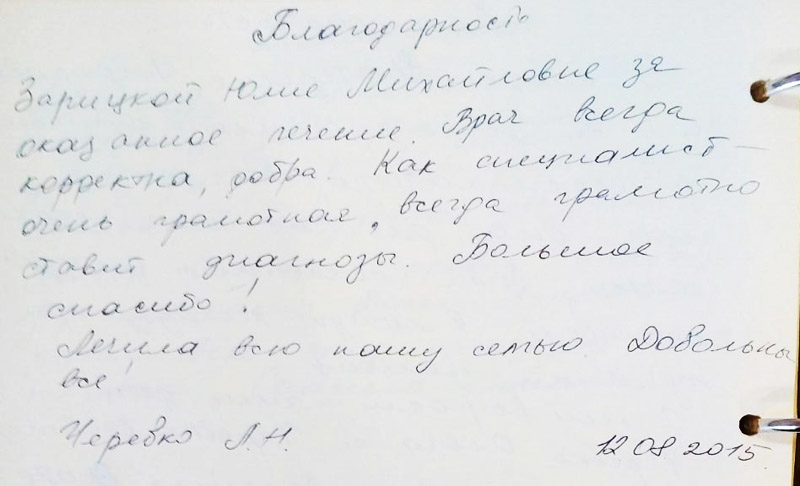 Благодарность
Зарицкой Юлие Михайловне за
оказанное лечение. Врач всегда
корректна, добра. Как специалист –
очень грамотная, всегда грамотно
ставит диагнозы. Большое
спасибо!
Лечила всю нашу семью. Довольны
все!
Черевко Л.Н. 12 08 2015.